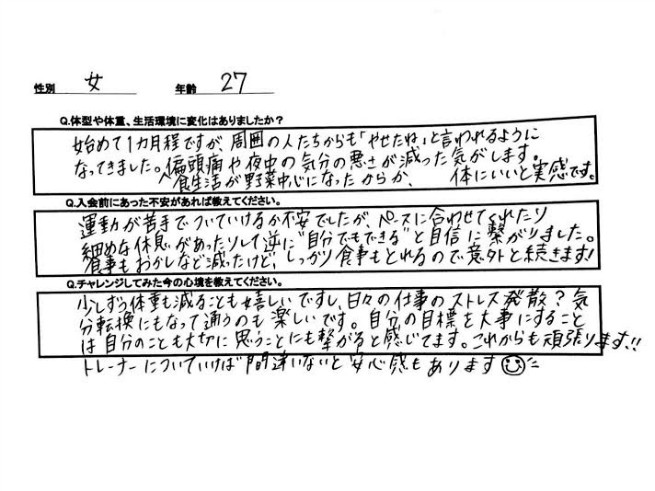 性別 女 年齢 27
Q.体型や体重、生活環境に変化はありましたか？
始めて1カ月程ですが、周囲の人たちからも「やせたね」と言われるように
なってきました。偏頭痛や夜中の気分の悪さが減った気がします。
食生活が野菜中心になったからか、 体にいいと実感です。
Q.入会前にあった不安があれば教えてください。
運動が苦手でついていけるか不安でしたが、ペースに合わせてくれたり
細めな休息があったりして逆に"自分でもできる"と自信に繋がりました。
食事もおかしなど減ったけど、しっかり食事もとれるので意外と続きます!
Q.チャレンジしてみた今の心境を教えてください。
少しずつ体重も減ることも嬉しいですし、日々の仕事のストレス発散？気
分転換にもなって通うのも楽しいです。自分の目標を大事にすること
は自分のことも大切に思うことにも繋がると感じてます。これからも頑張ります!!
トレーナーについていけば間違いないと安心感もあります